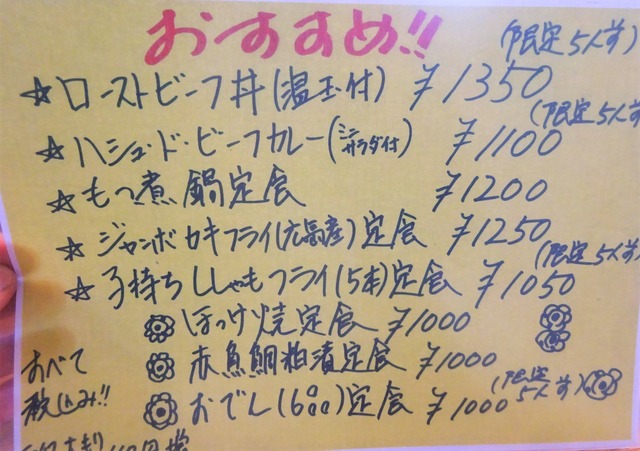 おすすめ!!
(限定5人前)
☆ローストビーフ丼(温玉付) ¥1350
(限定5人前)
☆ハシュ・ド・ビーフカレー(ミニサラダ付) ¥1100
☆もつ煮鍋定食 ¥1200
☆ジャンボカキフライ(広島産)定食 ¥1250
(限定5人前)
☆子持ちししゃもフライ(5本)定食 ¥1050
ほっけ焼定食 ¥1000
赤魚鯛粕漬定食 ¥1000
(限定5人前)
おでん(6コ)定食 ¥1000
すべて
税込み!!